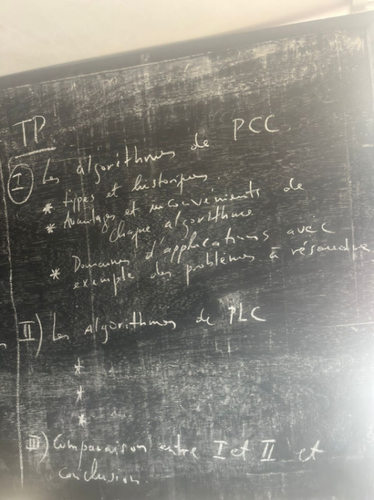 TP
I Les algorithmes de PCC.
* types et historiques.
* Avantages et inconvénients de
chaque algorithme
* Domaines d'applications avec
exemple des problèmes à résoudre
II) Les algorithmes de PLC
*
*
*
III) Comparaison entre I et II et
conclusion